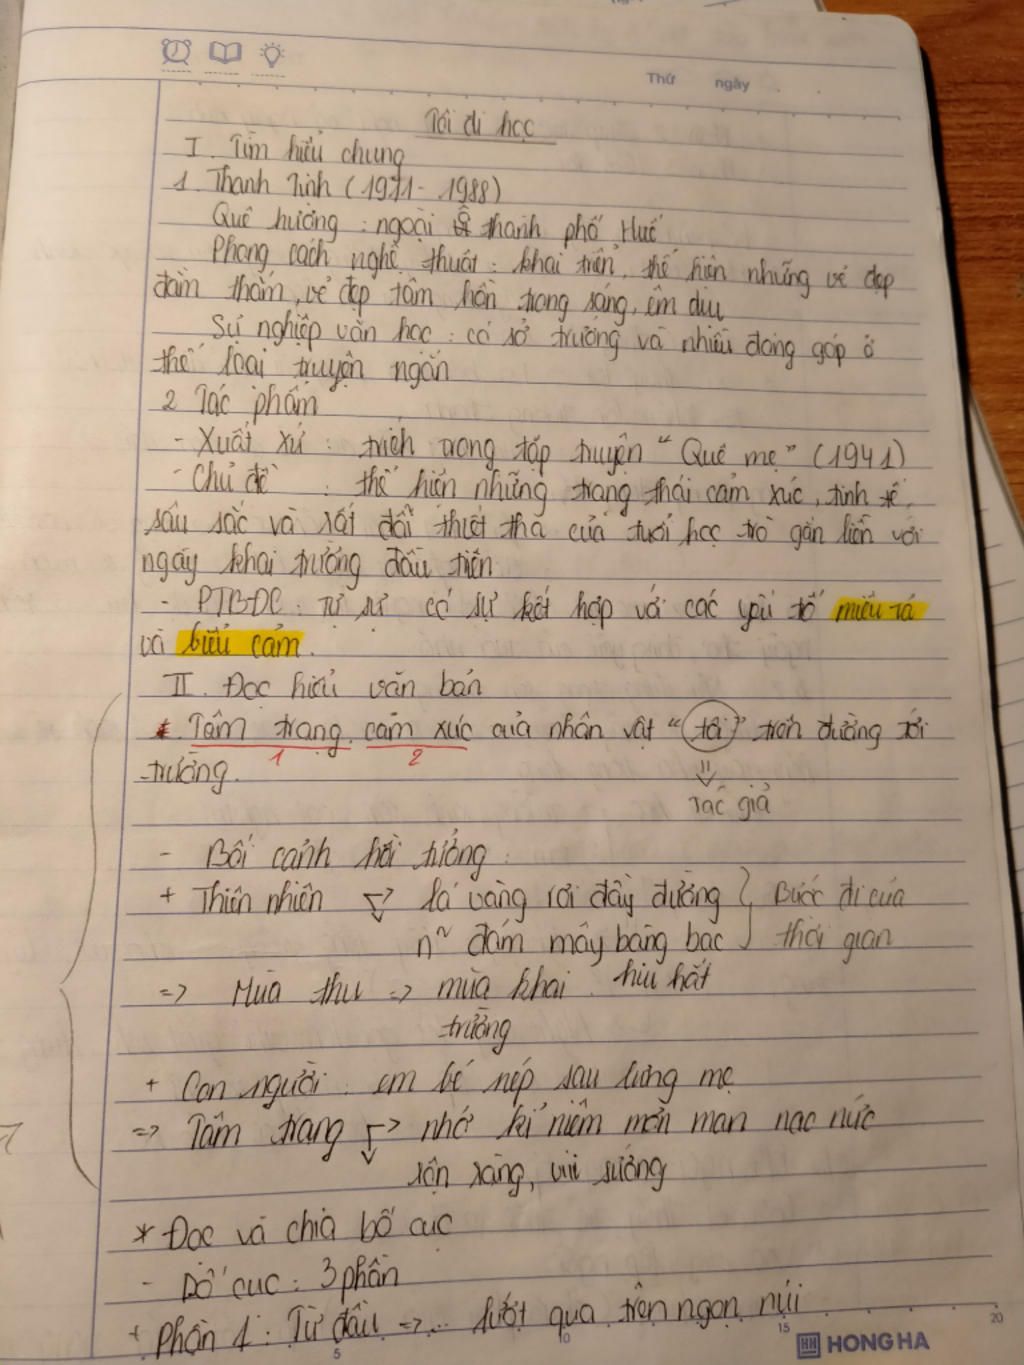 Thứ ngày
Tôi đi học
I. Tìm hiểu chung
1. Thanh Tịnh (1911 - 1988)
Quê hương : ngoại ô thành phố Huế
Phong cách nghệ thuật : khai triển, thể hiện những vẻ đẹp
đằm thắm, vẻ đẹp tâm hồn trong sáng, êm dịu
Sự nghiệp văn học : có sở trường và nhiều đóng góp ở
thể loại truyện ngắn
2 Tác phẩm
- Xuất xứ : trích trong tập truyện " Quê mẹ " (1941)
- Chủ đề : thể hiện những trạng thái cảm xúc, tinh tế,
sâu sắc và rất đỗi thiết tha của tuổi học trò gắn liền với
ngày khai trường đầu tiên
- PTBĐC : Tự sự có sự kết hợp với các yếu tố miêu tả
và biểu cảm.
II. Đọc hiểu văn bản
* Tâm trạng, cảm xúc của nhân vật " tôi " trên đường tới
1 2
trường.
=> Tác giả
- Bối cảnh hồi tưởng :
+ Thiên nhiên -> lá vàng rơi đầy đường } Bước đi của
n~ đám mây bàng bạc } thời gian
=> Mùa thu => mùa khai hiu hắt
trường
+ Con người : em bé nép sau lưng mẹ
=> Tâm trạng -> nhớ kỉ niệm mơn man nao nức
rộn ràng, vui sướng
* Đọc và chia bố cục
- Bố cục : 3 phần
+ Phần 1 : Từ đầu => ... lướt qua trên ngọn núi
5 10 15 20
HH HONG HA